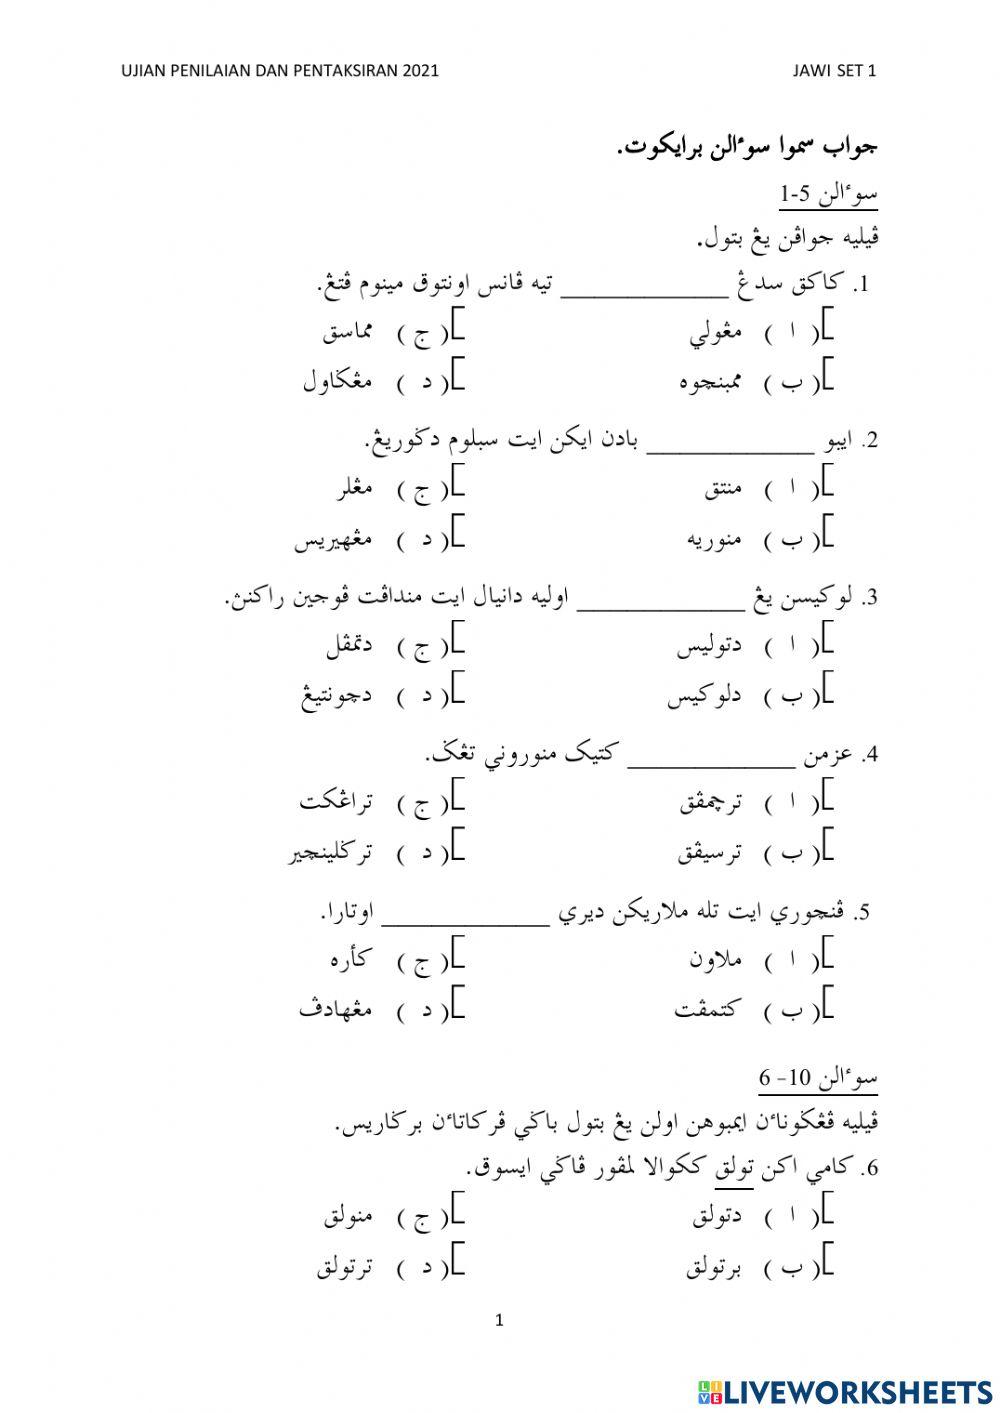 UJIAN PENILAIAN DAN PENTAKSIRAN 2021 JAWI SET 1
جواب سموا سوءالن برايكوت.
سوءالن 5-1
ڤيليه جواڤن يڠ بتول.
1. كاكق سدڠ ______________ تيه ڤانس اونتوق مينوم ڤتڠ.
( ا ) مڠولي ( ج ) مماسق
( ب ) ممبنچوه ( د ) مڠݢاول
2. ايبو ______________ بادن ايكن ايت سبلوم دݢوريڠ.
( ا ) منتق ( ج ) مڠلر
( ب ) منوريه ( د ) مڠهيريس
3. لوكيسن يڠ ______________ اوليه دانيال ايت منداڤت ڤوجين راكنڽ.
( ا ) دتوليس ( ج ) دتمڤل
( ب ) دلوكيس ( د ) دچونتيڠ
4. عزمن ______________ كتيک منوروني تڠݢ.
( ا ) ترچمڤق ( ج ) تراڠكت
( ب ) ترسيڤق ( د ) ترݢلينچير
5. ڤنچوري ايت تله ملاريكن ديري ______________ اوتارا.
( ا ) ملاون ( ج ) كأره
( ب ) كتمڤت ( د ) مڠهادڤ
سوءالن 10- 6
ڤيليه ڤڠݢوناءن ايمبوهن اولن يڠ بتول باݢي ڤركاتاءن برݢاريس.
6. كامي اكن تولق ككوالا لمڤور ڤاݢي ايسوق.
( ا ) دتولق ( ج ) منولق
( ب ) برتولق ( د ) ترتولق
1
LIVEWORKSHEETS